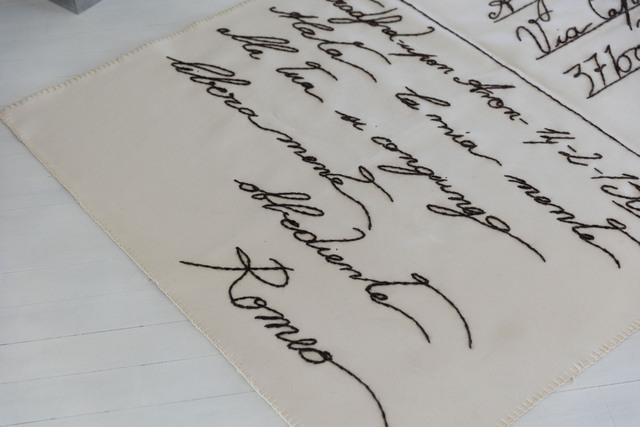 upon Avon- 14-2-15
Alata la mia mente
alla tua si congiungo
libera mente
obbediente
Romeo
Via